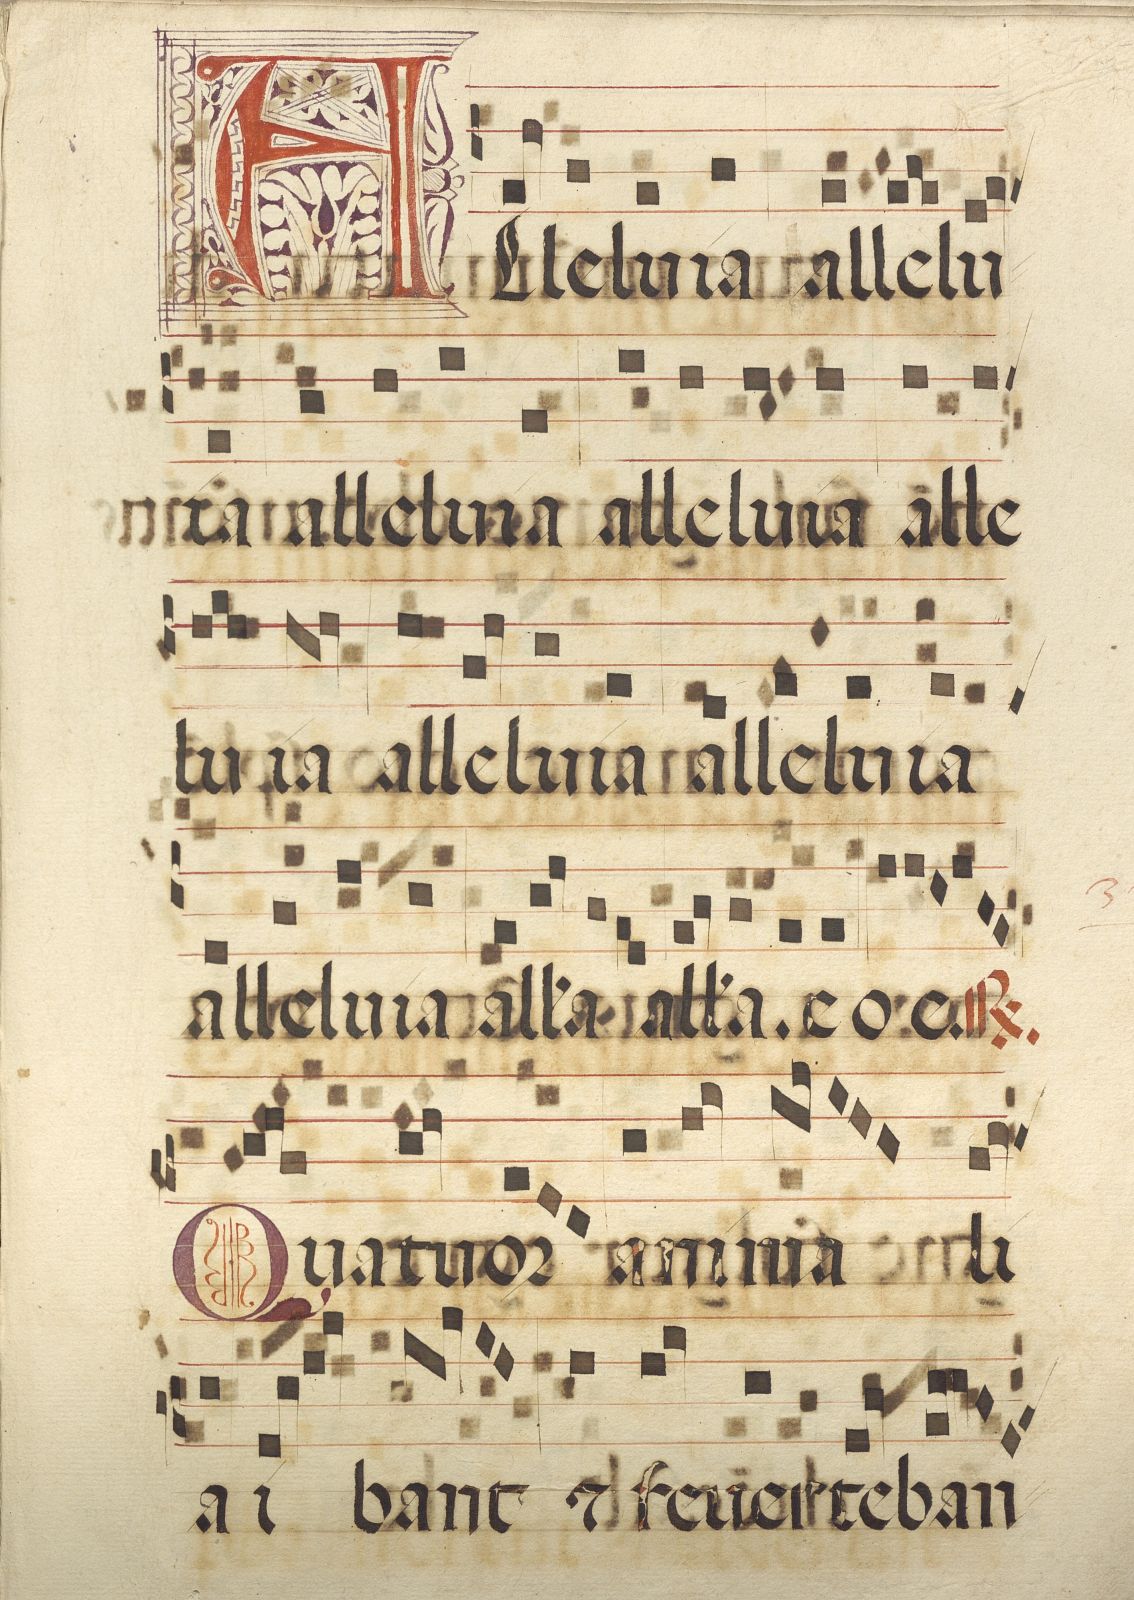 Alleluia allelu
ia alleluia alleluia alle
luia alleluia alleluia
alleluia all'a all'a. e o e. ℟.
Quatuor animia li
a i bant ⁊ reuerteban
3